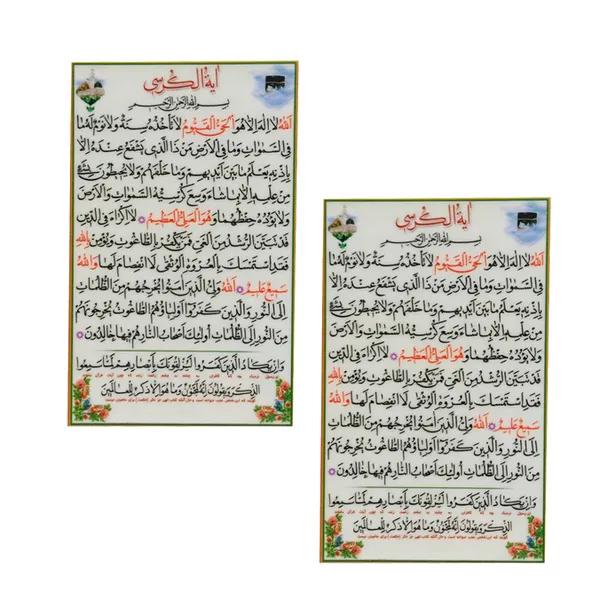 آية الكرسي
بسم الله الرحمن الرحيم
اَللهُ لا اِلهَ اِلاّ هُوَ الْحَيُّ الْقَيُّومُ لا تَأْخُذُهُ سِنَةٌ وَلا نَوْمٌ لَهُ ما
فِي السَّمواتِ وَما فِي الْاَرْضِ مَنْ ذَا الَّذي يَشْفَعُ عِنْدَهُ اِلاّ
بِاِذْنِهِ يَعْلَمُ ما بَيْنَ اَيْديهِمْ وَما خَلْفَهُمْ وَلا يُحيطُونَ بِشَيْءٍ
مِنْ عِلْمِهِ اِلاّ بِما شاءَ وَسِعَ كُرْسِيُّهُ السَّمواتِ وَالْاَرْضَ
وَلا يَؤُدُهُ حِفْظُهُما وَهُوَ الْعَلِيُّ الْعَظيمُ لا اِكْراهَ فِي الدّينِ
قَدْ تَبَيَّنَ الرُّشْدُ مِنَ الْغَيِّ فَمَنْ يَكْفُرْ بِالطّاغُوتِ وَيُؤْمِنْ بِاللهِ
فَقَدِ اسْتَمْسَكَ بِالْعُرْوَةِ الْوُثْقى لَا انْفِصامَ لَها وَاللهُ
سَميعٌ عَليمٌ اَللهُ وَلِيُّ الَّذينَ امَنُوا يُخْرِجُهُمْ مِنَ الظُّلُماتِ
اِلَى النُّورِ وَالَّذينَ كَفَرُوا اَوْلِياؤُهُمُ الطّاغُوتُ يُخْرِجُونَهُمْ
مِنَ النُّورِ اِلَى الظُّلُماتِ اُولئِكَ اَصْحابُ النّارِ هُمْ فيها خالِدُونَ
وَاِنْ يَكادُ الَّذينَ كَفَرُوا لَيُزْلِقُونَكَ بِاَبْصارِهِمْ لَمّا سَمِعُوا
الذِّكْرَ وَيَقُولُونَ اِنَّهُ لَمَجْنُونٌ وَما هُوَ اِلاّ ذِكْرٌ لِلْعالَمينَ
آية الكرسي
بسم الله الرحمن الرحيم
اَللهُ لا اِلهَ اِلاّ هُوَ الْحَيُّ الْقَيُّومُ لا تَأْخُذُهُ سِنَةٌ وَلا نَوْمٌ لَهُ ما
فِي السَّمواتِ وَما فِي الْاَرْضِ مَنْ ذَا الَّذي يَشْفَعُ عِنْدَهُ اِلاّ
بِاِذْنِهِ يَعْلَمُ ما بَيْنَ اَيْديهِمْ وَما خَلْفَهُمْ وَلا يُحيطُونَ بِشَيْءٍ
مِنْ عِلْمِهِ اِلاّ بِما شاءَ وَسِعَ كُرْسِيُّهُ السَّمواتِ وَالْاَرْضَ
وَلا يَؤُدُهُ حِفْظُهُما وَهُوَ الْعَلِيُّ الْعَظيمُ لا اِكْراهَ فِي الدّينِ
قَدْ تَبَيَّنَ الرُّشْدُ مِنَ الْغَيِّ فَمَنْ يَكْفُرْ بِالطّاغُوتِ وَيُؤْمِنْ بِاللهِ
فَقَدِ اسْتَمْسَكَ بِالْعُرْوَةِ الْوُثْقى لَا انْفِصامَ لَها وَاللهُ
سَميعٌ عَليمٌ اَللهُ وَلِيُّ الَّذينَ امَنُوا يُخْرِجُهُمْ مِنَ الظُّلُماتِ
اِلَى النُّورِ وَالَّذينَ كَفَرُوا اَوْلِياؤُهُمُ الطّاغُوتُ يُخْرِجُونَهُمْ
مِنَ النُّورِ اِلَى الظُّلُماتِ اُولئِكَ اَصْحابُ النّارِ هُمْ فيها خالِدُونَ
وَاِنْ يَكادُ الَّذينَ كَفَرُوا لَيُزْلِقُونَكَ بِاَبْصارِهِمْ لَمّا سَمِعُوا
الذِّكْرَ وَيَقُولُونَ اِنَّهُ لَمَجْنُونٌ وَما هُوَ اِلاّ ذِكْرٌ لِلْعالَمينَ